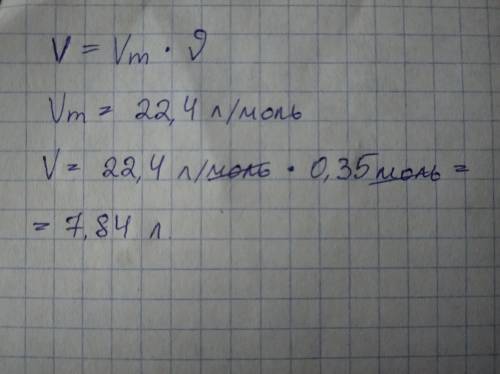 V = Vm · ϑ
Vm = 22,4 л/моль
V = 22,4 л/моль · 0,35 моль =
= 7,84 л